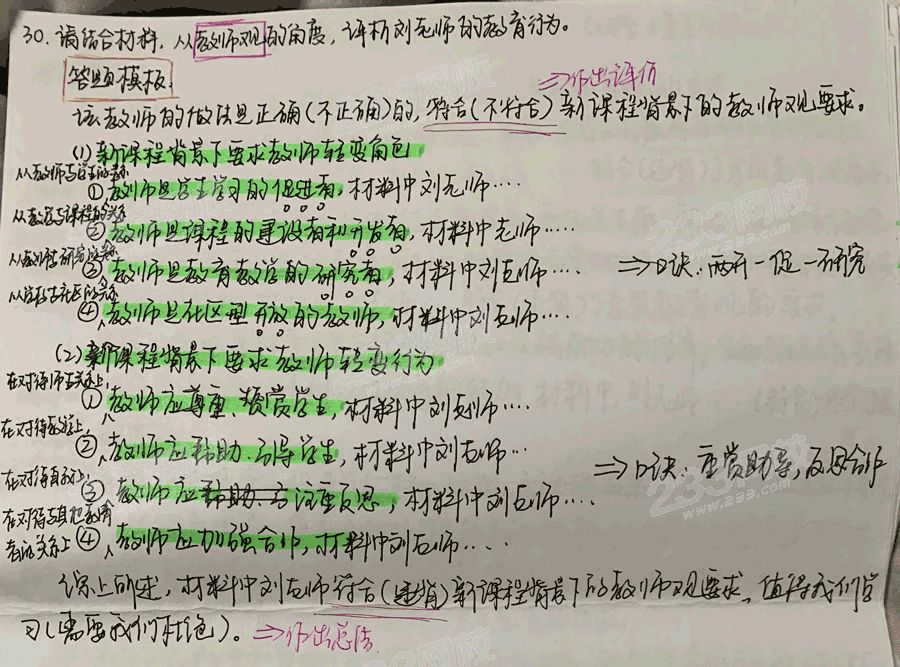 30. 请结合材料，从教师观的角度，评析刘老师的教育行为。
答题模板
⇒作出评价
该教师的做法是正确(不正确)的，符合(不符合)新课程背景下的教师观要求。
(1)新课程背景下要求教师转变角色
从教师与学生的关系
①教师是学生学习的促进者，材料中刘老师……
从教学与课程的关系
②教师是课程的建设者和开发者，材料中老师……
从教学与研究的关系
③教师是教育教学的研究者，材料中刘老师…… ⇒口诀：两开一促一研究
从学校与社区的关系
④教师是社区型开放的教师，材料中刘老师……
(2)新课程背景下要求教师转变行为
在对待师生关系上，
①教师应尊重、赞赏学生，材料中刘老师……
在对待教学上，
②教师应帮助、引导学生，材料中刘老师…… ⇒口诀：重赏助导，反思合作
在对待自我上，
③教师应注重反思，材料中刘老师……
在对待与其他教育者的关系上
④教师应加强合作，材料中刘老师……
综上所述，材料中刘老师符合(违背)新课程背景下的教师观要求，值得我们学
习(需要我们杜绝)。⇒作出总结
233网校
www.233.com